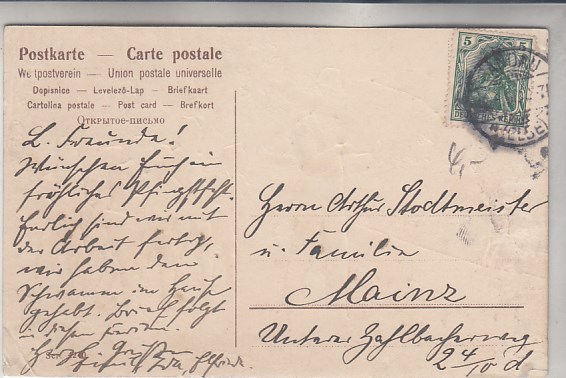 Postkarte — Carte postale
Weltpostverein — Union postale universelle
Dopisnice — Levelező-Lap — Briefkaart
Cartolina postale — Post card — Brefkort
Открытое-письмо
5
DEUTSCHES REICH
L. Freunde!
Wünschen Euch ein
fröhliches Pfingstfest.
Endlich sind wir mit
der Arbeit fertig,
wir haben den
Schwamm im Hause
gehabt. Brief folgt
in diesen Ferien.
Grüßen
Ser.
4,-
Herrn Arthur Stodtmeister
u. Familie
Mainz
Unterer Zahlbacherweg
24/10 d